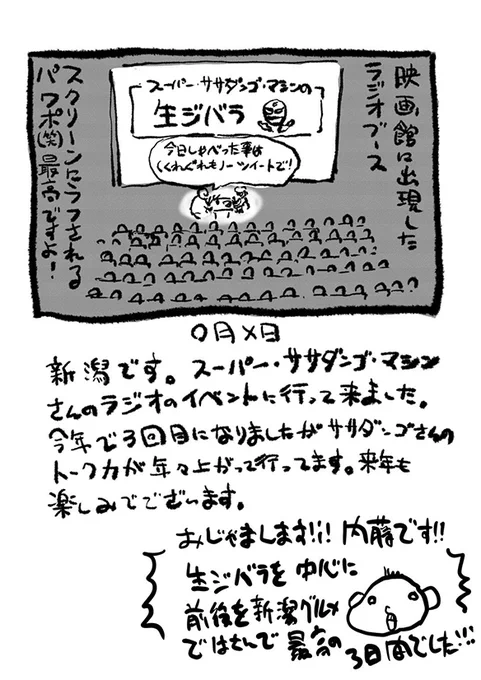 映画館に出現した
ラジオブース
スーパー・ササダンゴ・マシンの
生ジバラ
今日しゃべった事は
くれぐれもノーツイートで!
スクリーンにうつされる
パワポ(笑)最高ですよ!
〇月×日
新潟です。スーパー・ササダンゴ・マシン
さんのラジオのイベントに行って来ました。
今年で3回目になりましたがササダンゴさんの
トーク力が年々上がって行ってます。来年も
楽しみでございます。
おじゃまします!!! 内藤です!!
生ジバラを中心に
前後を新潟グルメ
ではさんで最高の3日間でした!!!